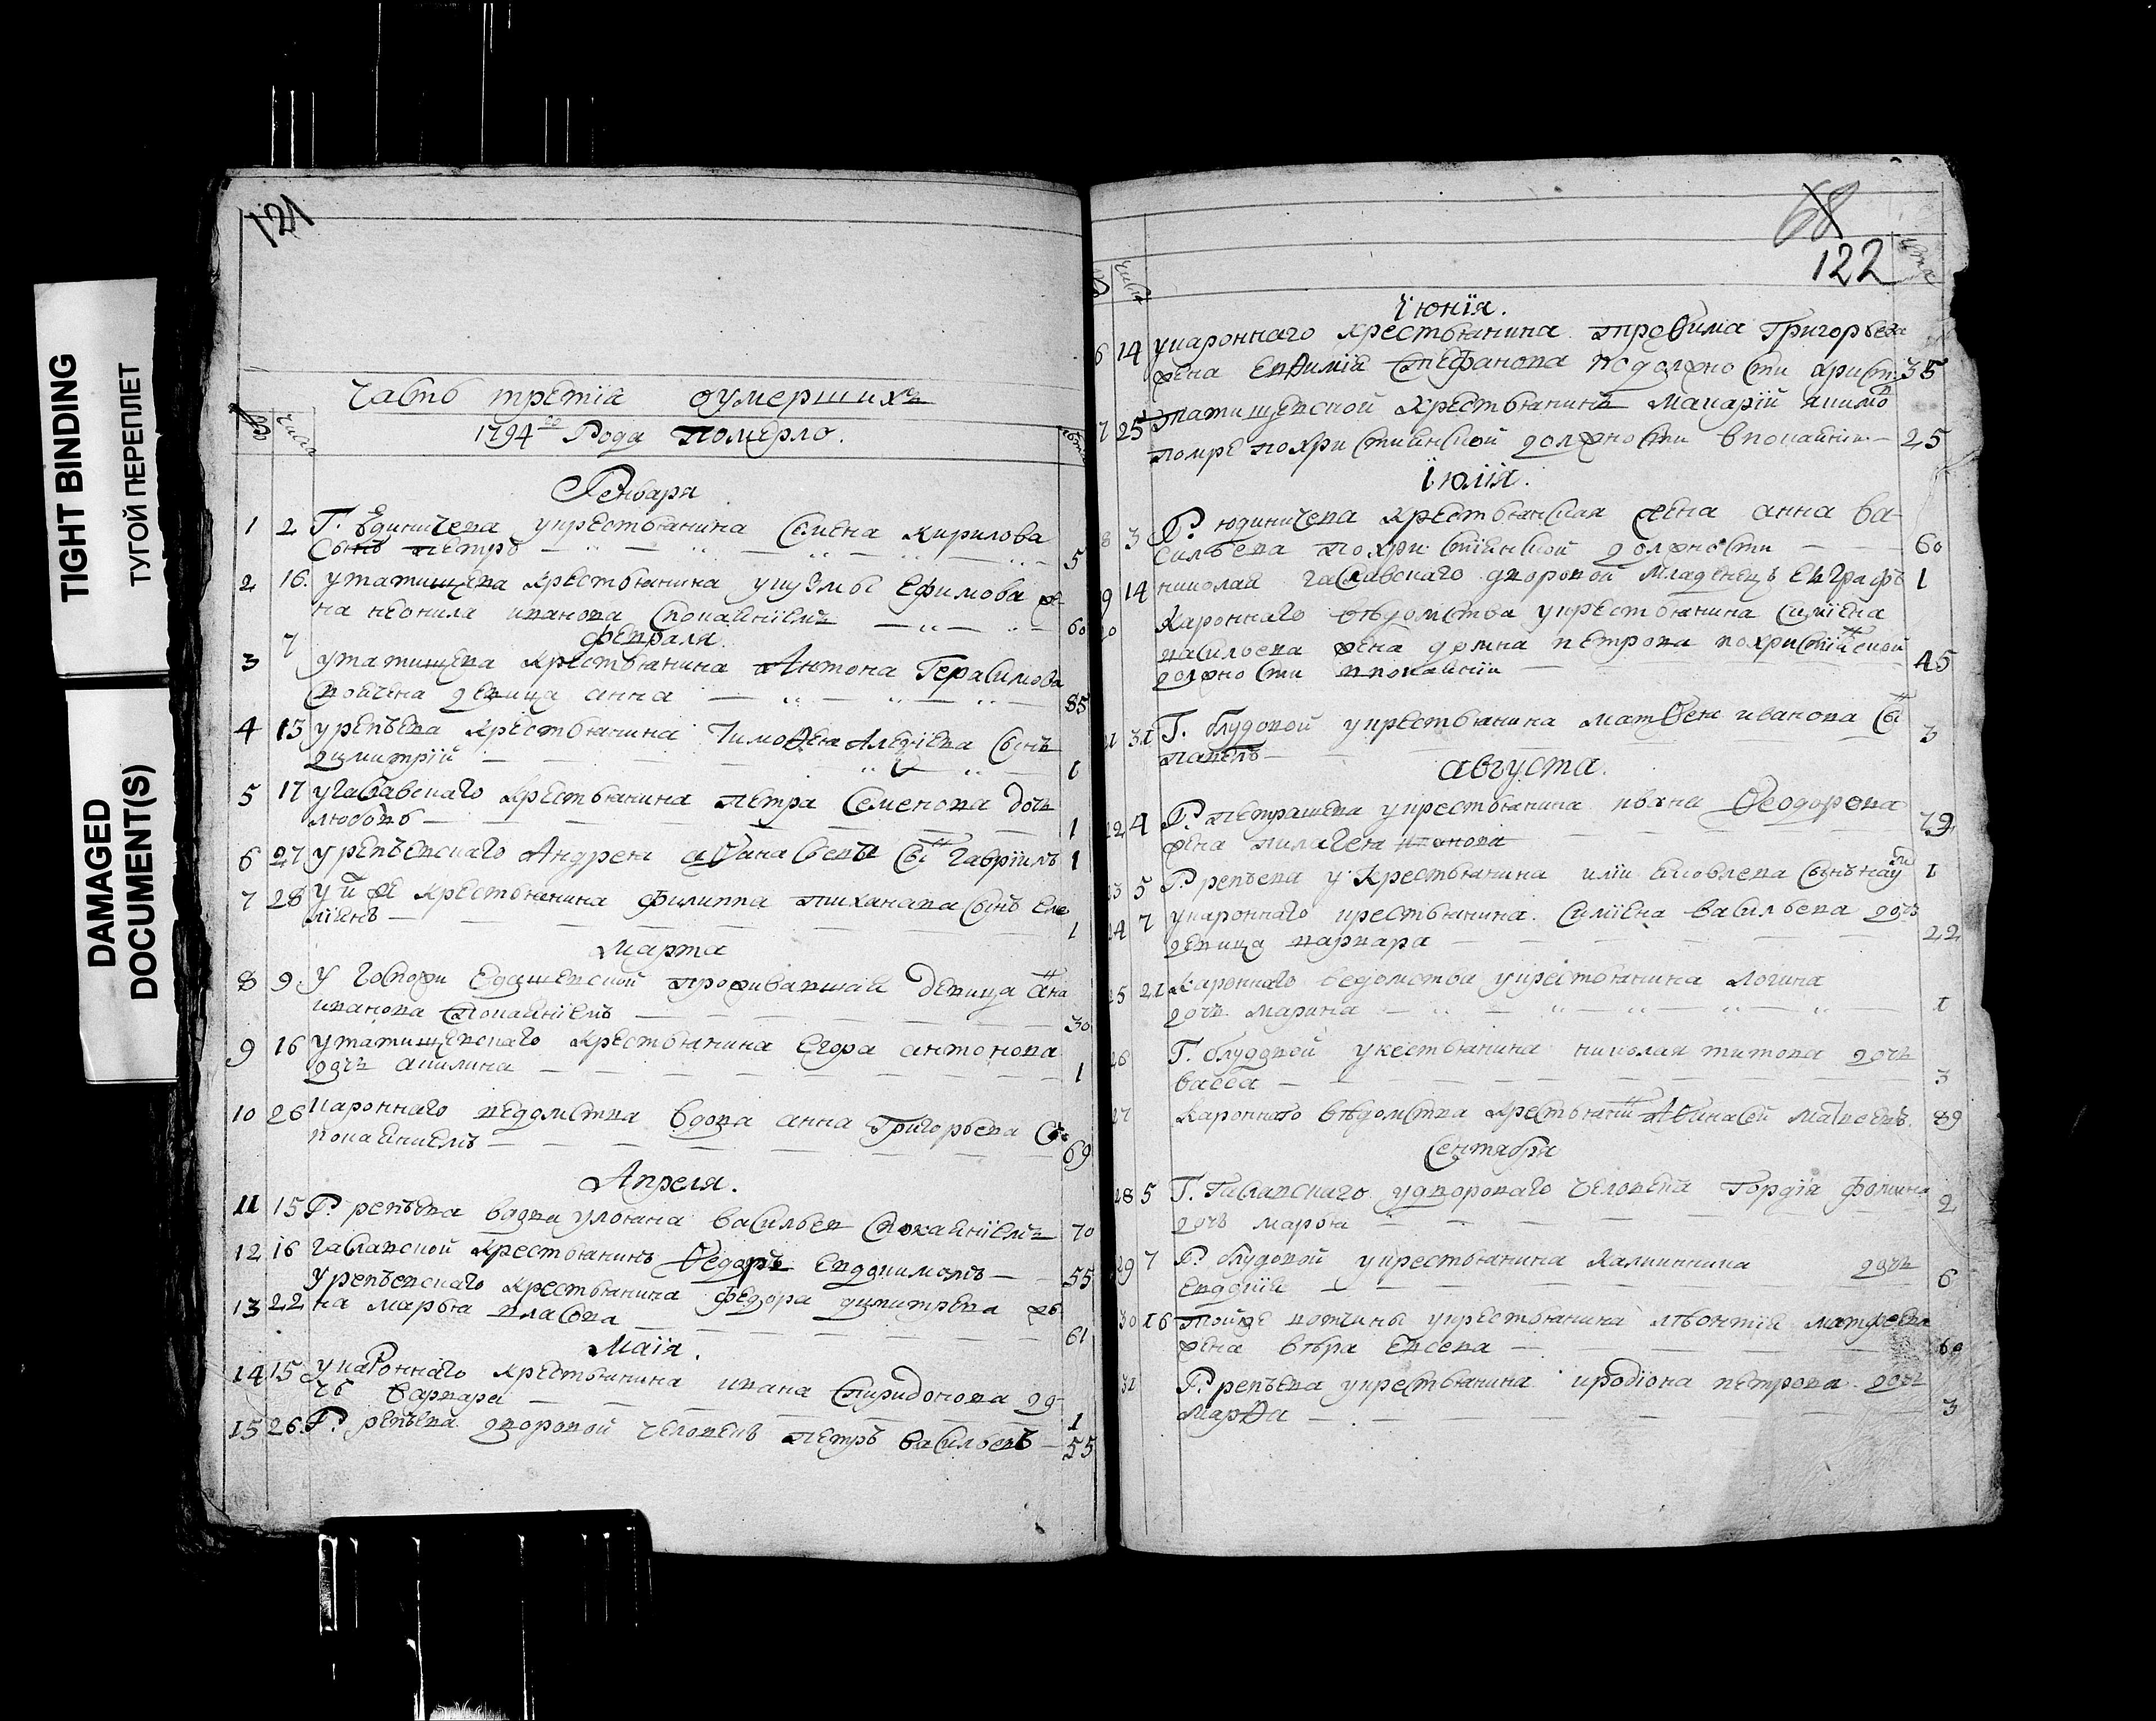 TIGHT BINDING
ТУГОЙ ПЕРЕПЛЕТ
DAMAGED
DOCUMENT(S)
121
часть третїя оумершихъ
числа
1794го Года Померло.
лѣта
Генваря
1 2 Г. Юдиничева укрестьянина Семена кирилова
Сынъ петръ 5
2 16 утатищева крестьянина Ефимова же-
на неонила иванова Спокаянїемъ 60
февраля.
3 7 утатищева крестьянина Антона Герасимова
девица анна 85
4 13 урепъева крестьянина Тимоѳея Сынъ
димитрїй 1
5 17 угаславскаго крестьянина петра Семенова дочь
любовь 1
6 27 урепъевскаго Андрея аѳанасьева Сынъ гаврїилъ 1
7 28 у крестьянина филиппа Сынъ
1
Марта
8 9 У Госпожи проживавшая девица анна
иванова Спокаянїемъ 30
9 16 утатищевскаго крестьянина Егора антонова
дочь акилина 1
10 26 кароннаго ведомства вдова анна Григорьева Съ
покаянїемъ 69
Апреля.
11 15 Г. репъева вдова улияна васильев Спокаянїемъ 70
12 16 гаславской крестьянинъ Ѳедоръ Евдокимовъ 55
13 22 Урепъевскаго крестьянина федора димитрева же-
на марья власова 61
Маїя.
14 15 укароннаго крестьянина ивана Спиридонова до-
чь варвара 1
15 26 Г. репъева дворовой человекъ петръ васильевъ 55
68
122
числа
лѣта
Їюнїя.
6 14 укароннаго крестьянина троѳима Григорьева
жена Евѳимїя Стефанова подолжности христ. 35
7 25 татищевской крестьянинъ Макарїй
помре похристиянской должности впокаянїи 25
Їюлїя.
8 3 Г. юдиничева крестьянская жена анна ва-
сильева похристїянской должности 60
9 14 николая гаславскаго дворовой младенецъ Евграфъ 1
20 кароннаго вѣдомства укрестьянина Симїона
васильева жена домна петрова похристїянской
должности впокаянїи 45
21 31 Г. блудовой укрестьянина матѳея иванова Сынъ
павелъ 3
августа.
22 4 Г. петрашева укрестьянина ивана Ѳеодорова
жена пилагея иванова 79
23 5 Г. репъева у крестьянина илїи яковлева Сынъ наумъ 1
24 7 укароннаго крестьянина Симїона васильева дочь
девица варвара 22
25 21 кароннаго ведомства укрестьянина Логина
дочь марина 1
26 Г. блудовой укестьянина николая титова дочь
васса 3
27 кароннаго вѣдомства крестьянинъ Аѳанасей Матвеевъ 89
Сентября
28 5 Г. Гаславскаго удвороваго человека Гордїя фомина
дочь марѳа 2
29 7 Г. блудовой укрестьянина Калинкина дочь
Евдокїя 6
30 16 тойже вотчины укрестьянина лѣонтїя матфеева
жена вѣра Евсева 60
31 Г. репъева укрестьянина иродїона петрова дочь
Марѳа 3